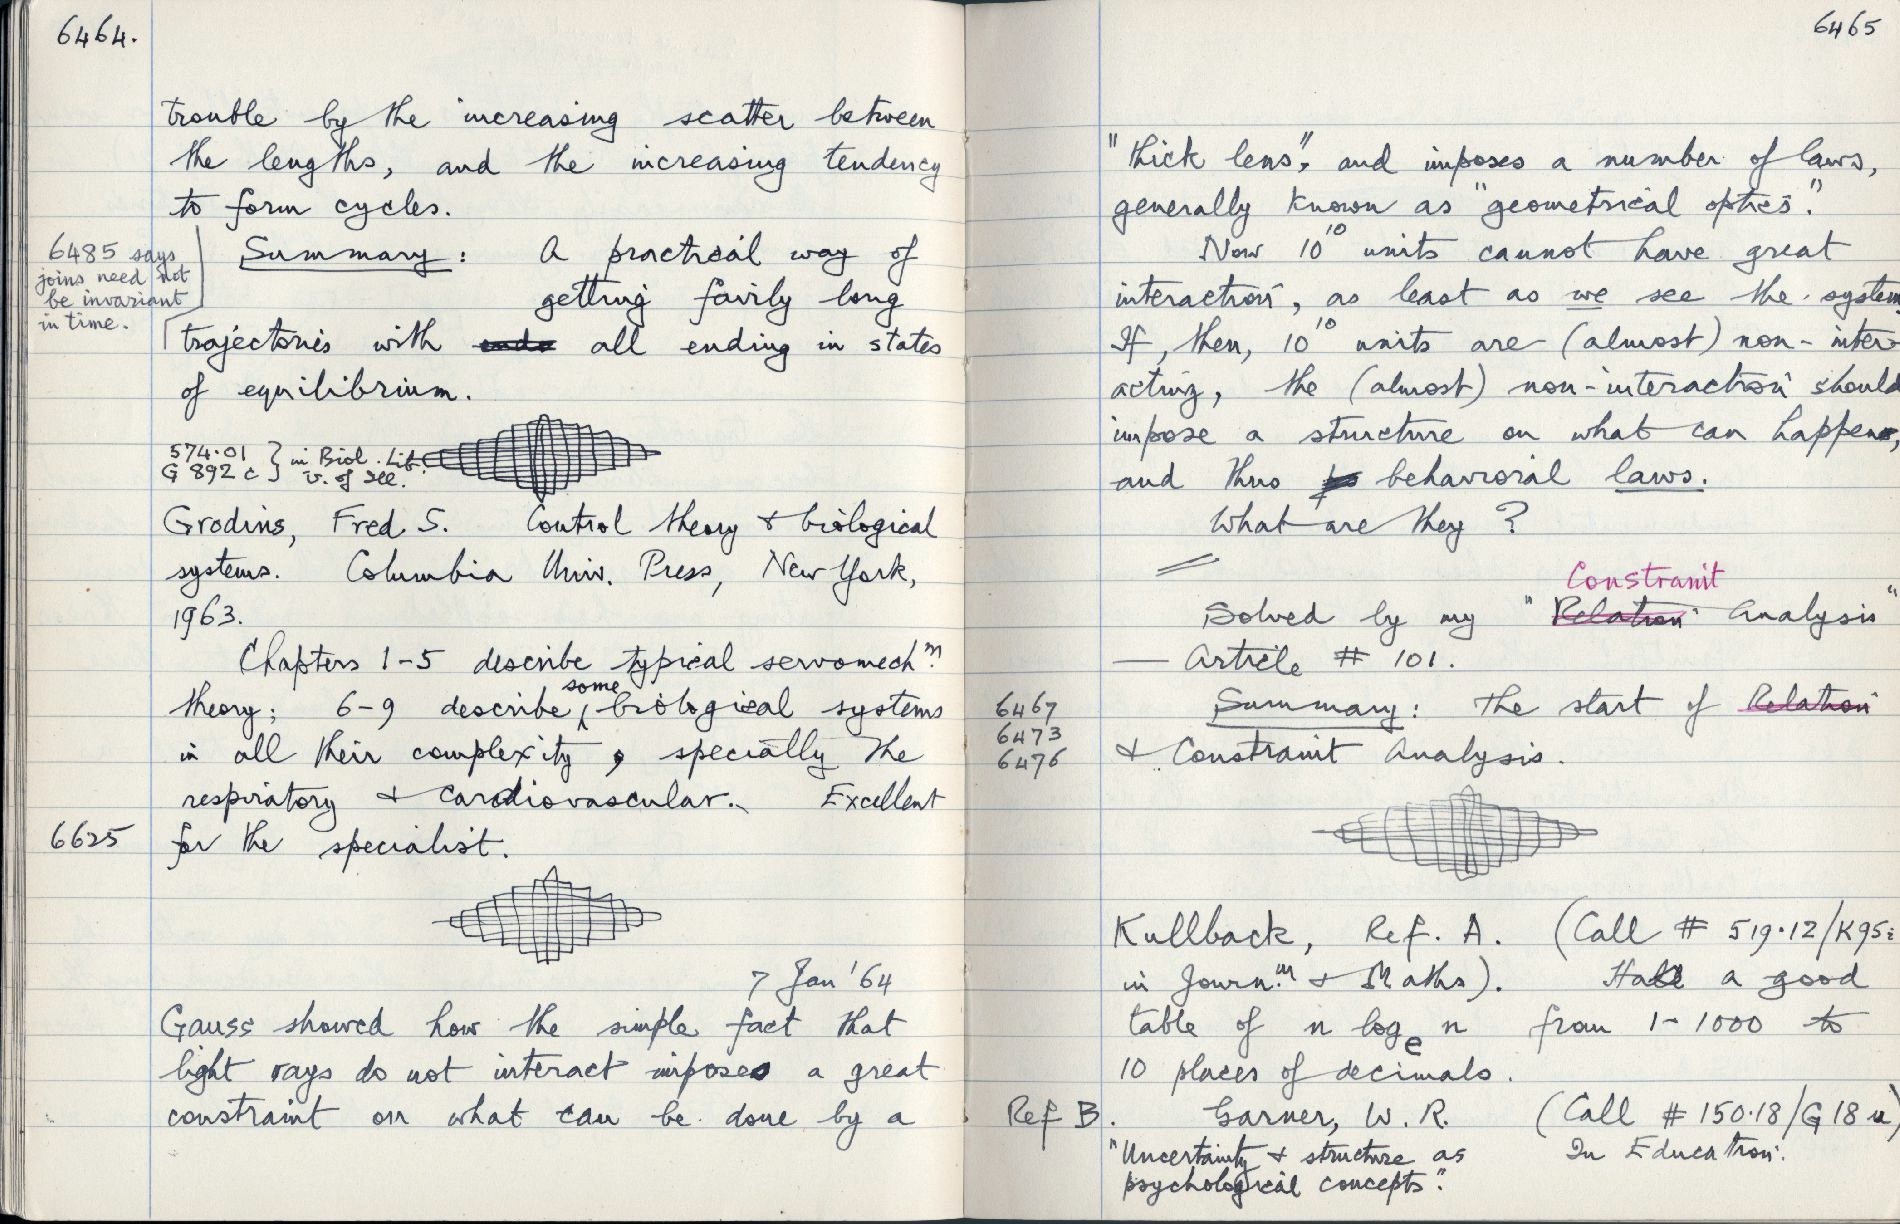 6464.
trouble by the increasing scatter between
the lengths, and the increasing tendency
to form cycles.
6485 says
joins need not
be invariant
in time.
Summary: A practical way of
getting fairly long
trajectories with ends all ending in states
of equilibrium.
574.01
G 892 c } in Biol. Lib.
U. of Ill.
Grodins, Fred S. Control theory & biological
systems. Columbia Univ. Press, New York,
1963.
Chapters 1-5 describe typical servomechm.
theory; 6-9 describe some biological systems
in all their complexity, specially the
respiratory & cardiovascular. Excellent
6625
for the specialist.
7 Jan '64
Gauss showed how the simple fact that
light rays do not interact imposes a great
constraint on what can be done by a
6465
"thick lens", and imposes a number of laws,
generally known as "geometrical optics".
Now 10^10 units cannot have great
interaction, as least as we see the system.
If, then, 10^10 units are (almost) non-inter-
acting, the (almost) non-interaction should
impose a structure on what can happen,
and thus behavioral laws.
What are they?
Constraint
Solved by my "Relation Analysis"
— Article # 101.
6467
6473
6476
Summary: The start of Relation
& Constraint Analysis.
Kullback, Ref. A. (Call # 519.12/K95i
in Journ.m & Maths). Has a good
table of n log_e n from 1-1000 to
10 places of decimals.
Ref B. Garner, W. R. (Call # 150.18/G18u)
"Uncertainty & structure as In Education.
psychological concepts".